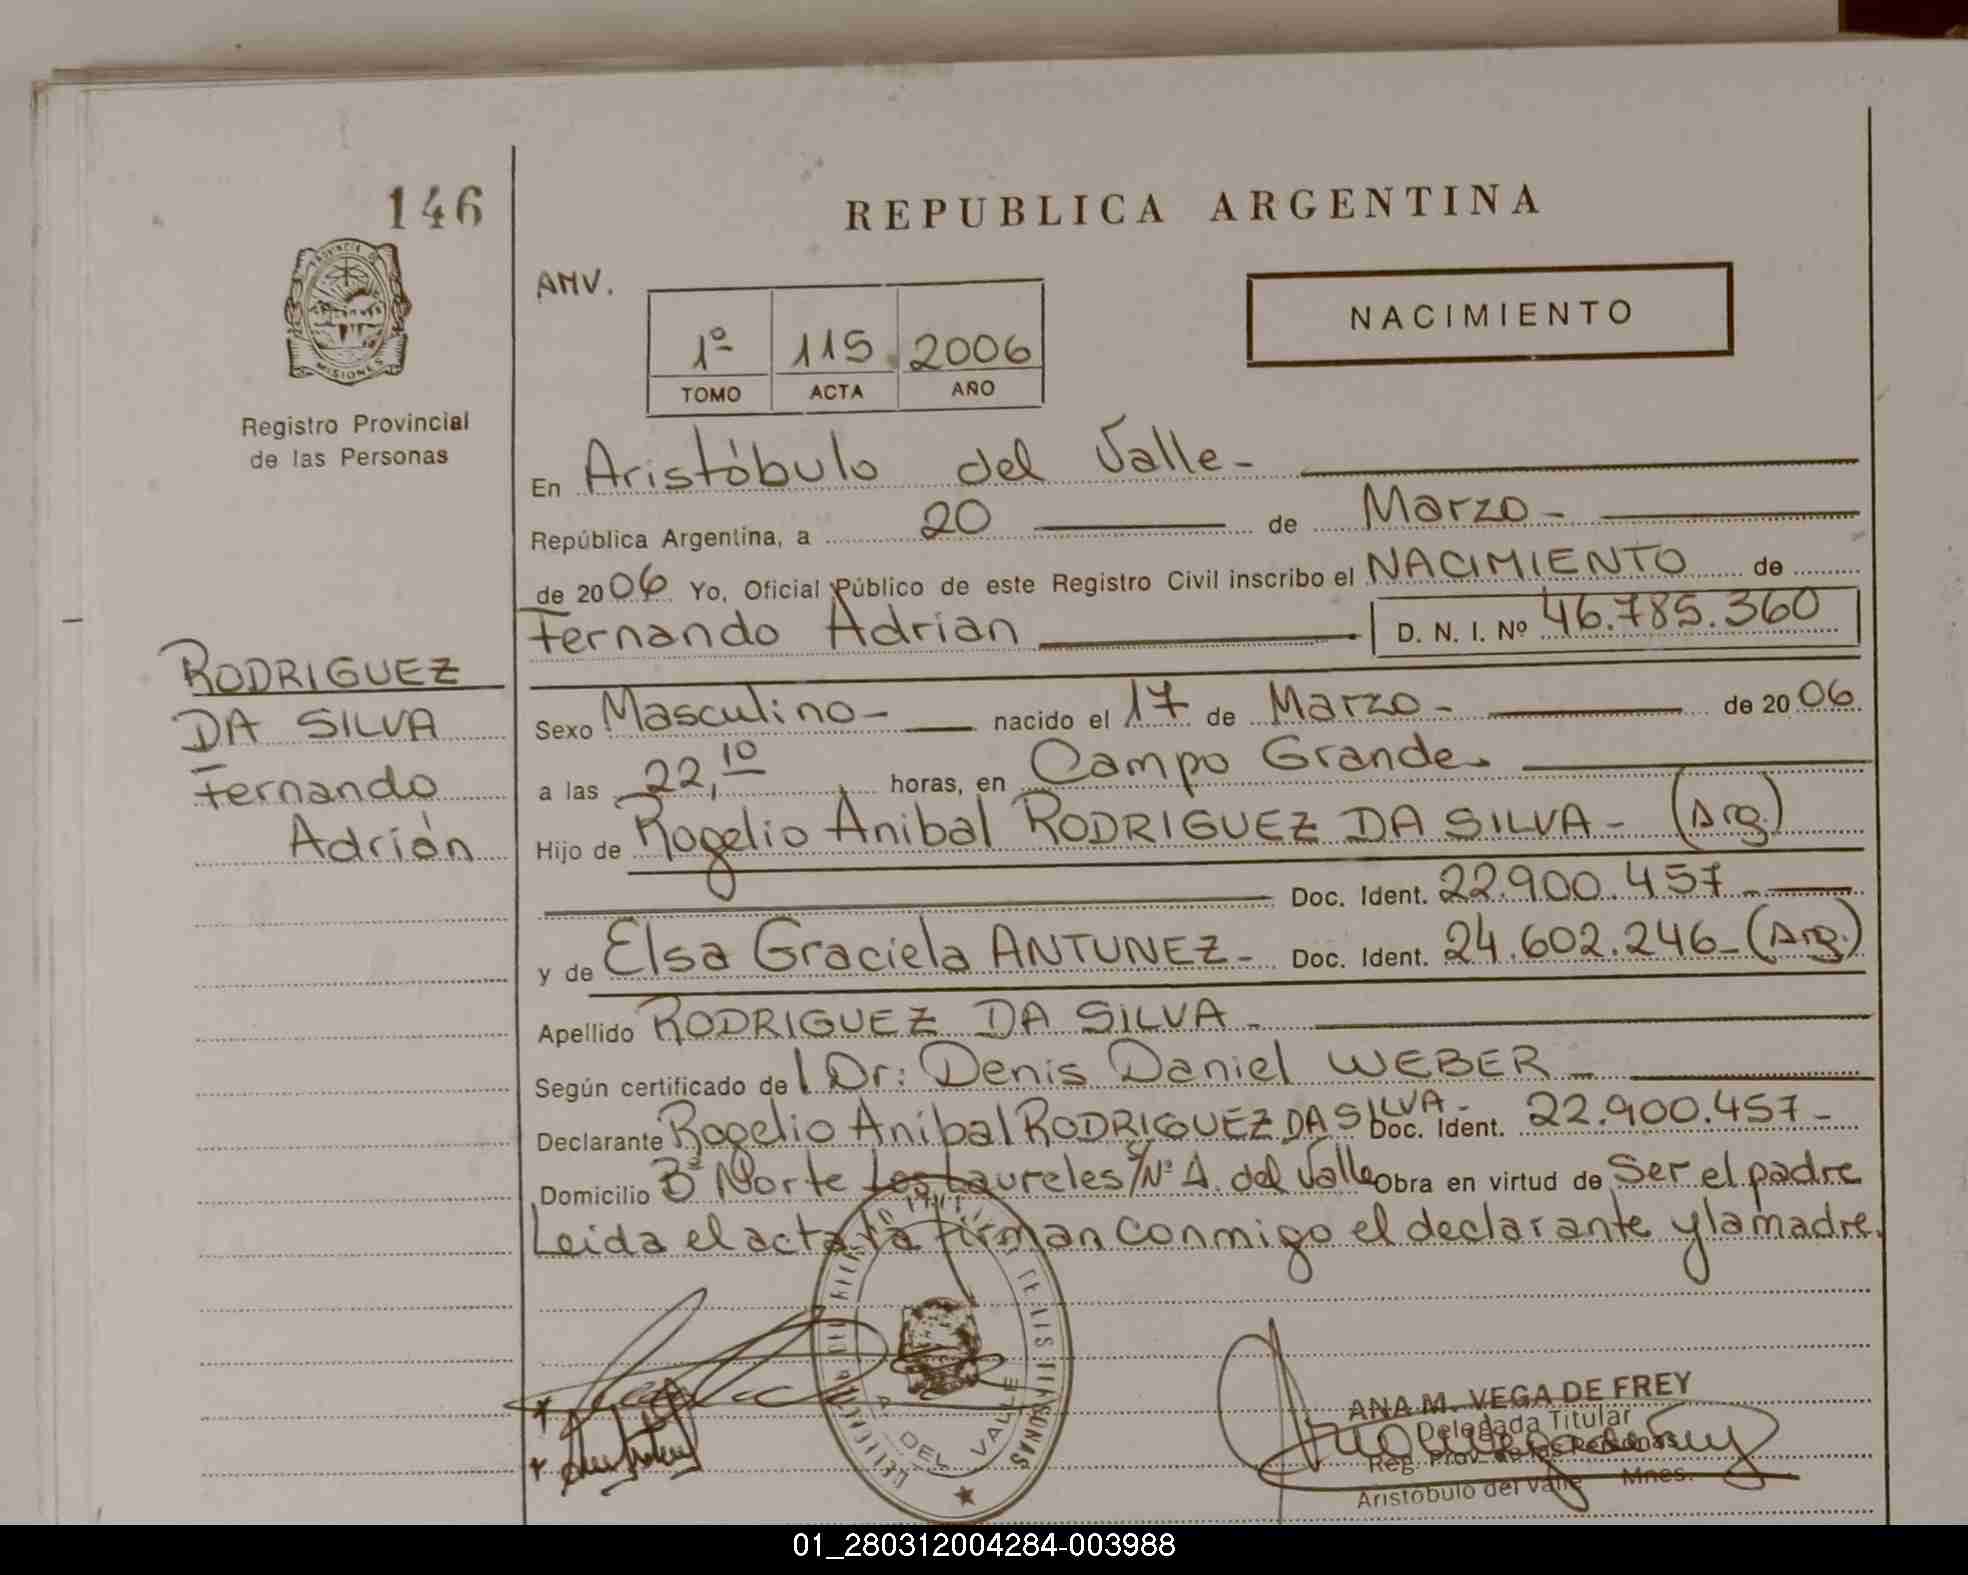 146
REPUBLICA ARGENTINA
PROVINCIA D
MISIONES
Registro Provincial
de las Personas
AMV.
1º 115 2006
TOMO ACTA AÑO
NACIMIENTO
En Aristóbulo del Valle-
República Argentina, a 20 de Marzo-
de 2006 Yo, Oficial Público de este Registro Civil inscribo el NACIMIENTO de
Fernando Adrian D. N. I. Nº 46.785.360
RODRIGUEZ
DA SILVA
Fernando
Adrián
Sexo Masculino- nacido el 17 de Marzo- de 2006.
a las 22,10 horas, en Campo Grande.
Hijo de Rogelio Anibal RODRIGUEZ DA SILVA- (Arg.)
Doc. Ident. 22.900.457-
y de Elsa Graciela ANTUNEZ- Doc. Ident. 24.602.246-(Arg.)
Apellido RODRIGUEZ DA SILVA-
Según certificado de Dr: Denis Daniel WEBER-
Declarante Rogelio Anibal RODRIGUEZ DA SILVA- Doc. Ident. 22.900.457-
Domicilio Bº Norte Los Laureles S/Nº A. del Valle Obra en virtud de Ser el padre
Leida el acta la firman conmigo el declarante y la madre.
DE LAS PERSONAS
A. DEL VALLE
ANA M. VEGA DE FREY
Delegada Titular
Reg. Prov. de las Personas
Aristóbulo del Valle Mnes.
01_280312004284-003988